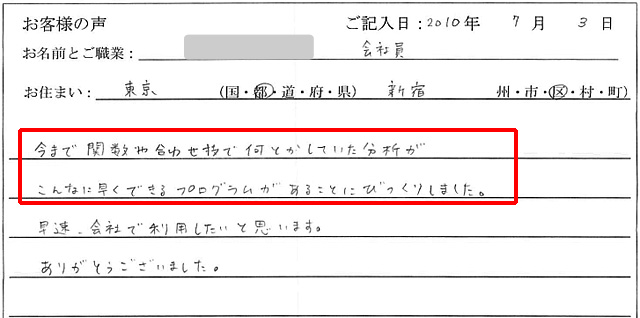 お客様の声 ご記入日：2010年 7月 3日
お名前とご職業： 会社員
お住まい： 東京 （国・都・道・府・県） 新宿 州・市・区・村・町）
今まで関数や合わせ技で何とかしていた分析が
こんなに早くできるプログラムがあることにびっくりしました。
早速、会社で利用したいと思います。
ありがとうございました。